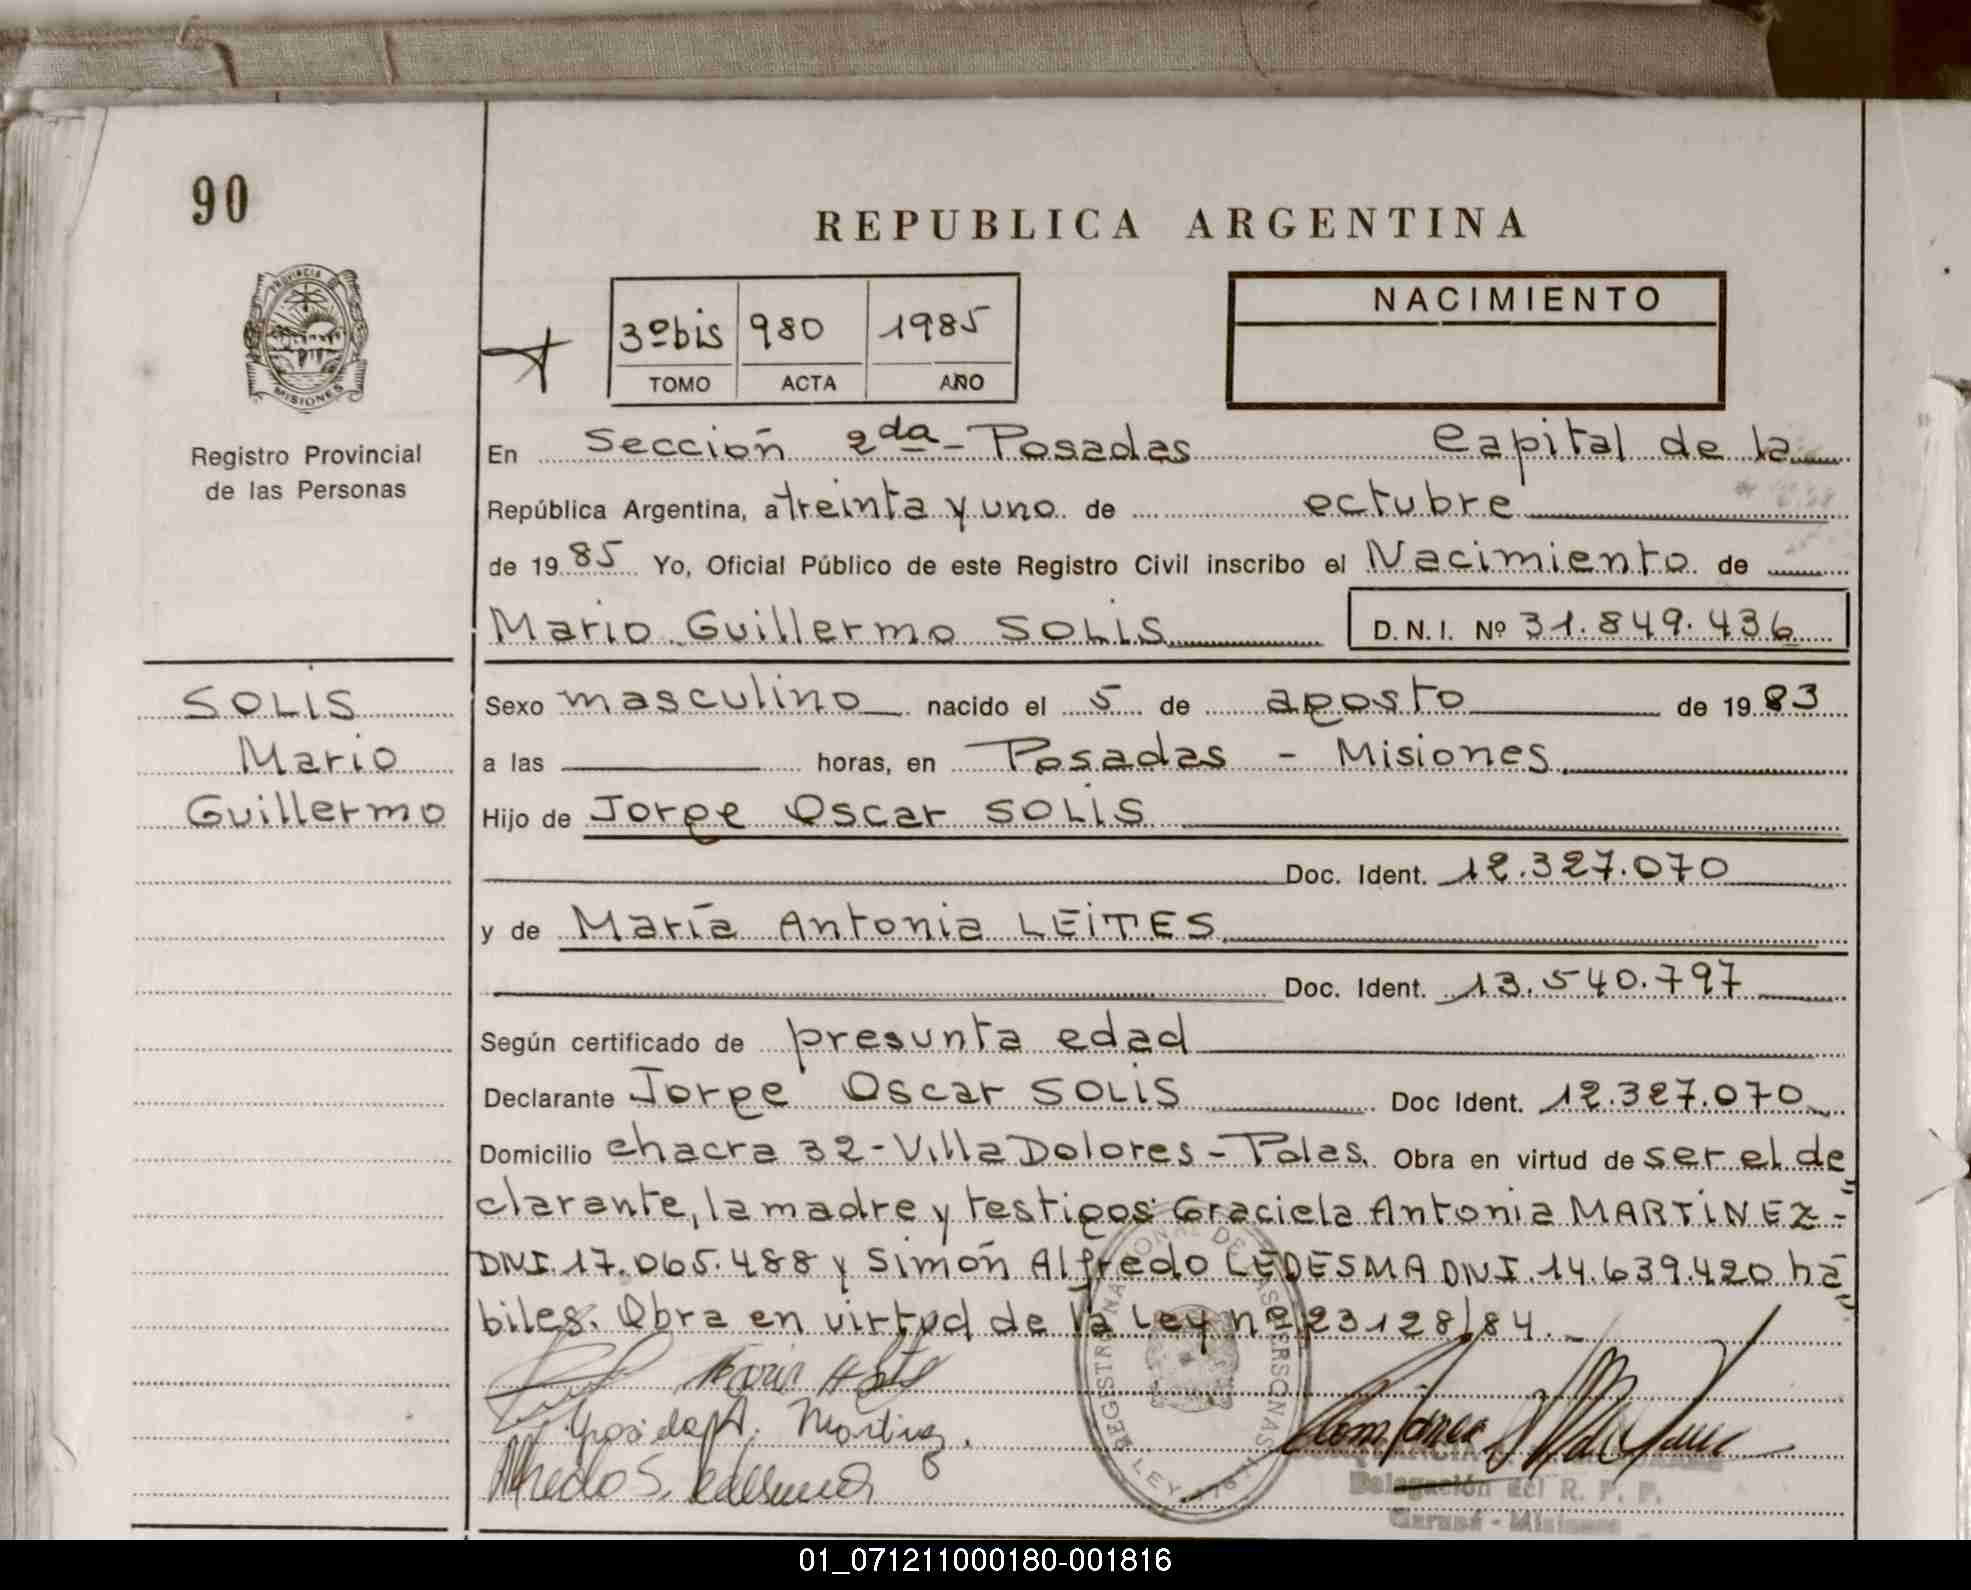 90
REPUBLICA ARGENTINA
PROVINCIA
MISIONES
Registro Provincial
de las Personas
3º bis 980 1985
TOMO ACTA AÑO
NACIMIENTO
En Sección 2da - Posadas Capital de la
República Argentina, a treinta y uno de octubre
de 1985 Yo, Oficial Público de este Registro Civil inscribo el Nacimiento de
Mario Guillermo SOLIS D.N.I. Nº 31.849.436
SOLIS
Mario
Guillermo
Sexo masculino nacido el 5 de agosto de 1983
a las horas, en Posadas - Misiones.
Hijo de Jorge Oscar SOLIS
Doc. Ident. 12.327.070
y de María Antonia LEITES
Doc. Ident. 13.540.797
Según certificado de presunta edad
Declarante Jorge Oscar SOLIS Doc Ident. 12.327.070
Domicilio chacra 32 - Villa Dolores - Pdas. Obra en virtud de ser el de
clarante, la madre y testigos: Graciela Antonia MARTINEZ -
DNI. 17.065.488 y Simón Alfredo LEDESMA DNI. 14.639.420 há
biles. Obra en virtud de la Ley nº 23128/84.
REGISTRO NACIONAL DE LAS PERSONAS
LEY
Delegación del R. P. P.
Garupá - Misiones
01_071211000180-001816